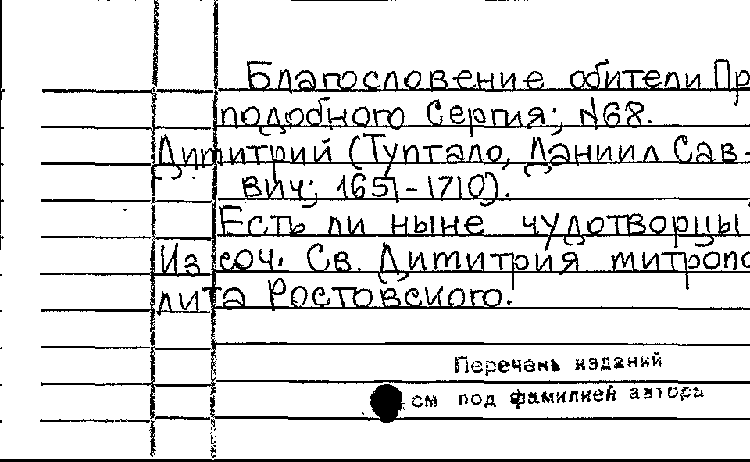 Благословение обители Пр
подобного Сергия; №68.
Димитрий (Туптало, Даниил Сав-
вич; 1651-1710).
Есть ли ныне чудотворцы
Из соч. Св. Димитрия митропо
лита Ростовского.
Перечень изданий
см под фамилией автора